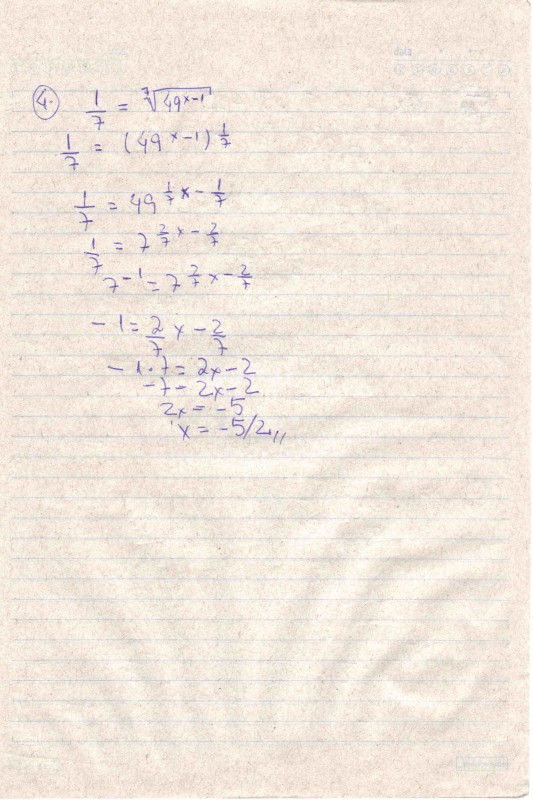 4. 1/7 = ⁷√(49^(x-1))
1/7 = (49^(x-1))^(1/7)
1/7 = 49^(1/7 x - 1/7)
1/7 = 7^(2/7 x - 2/7)
7^(-1) = 7^(2/7 x - 2/7)
-1 = 2/7 x - 2/7
-1·7 = 2x-2
-7 = 2x-2
2x = -5
x = -5/2,,